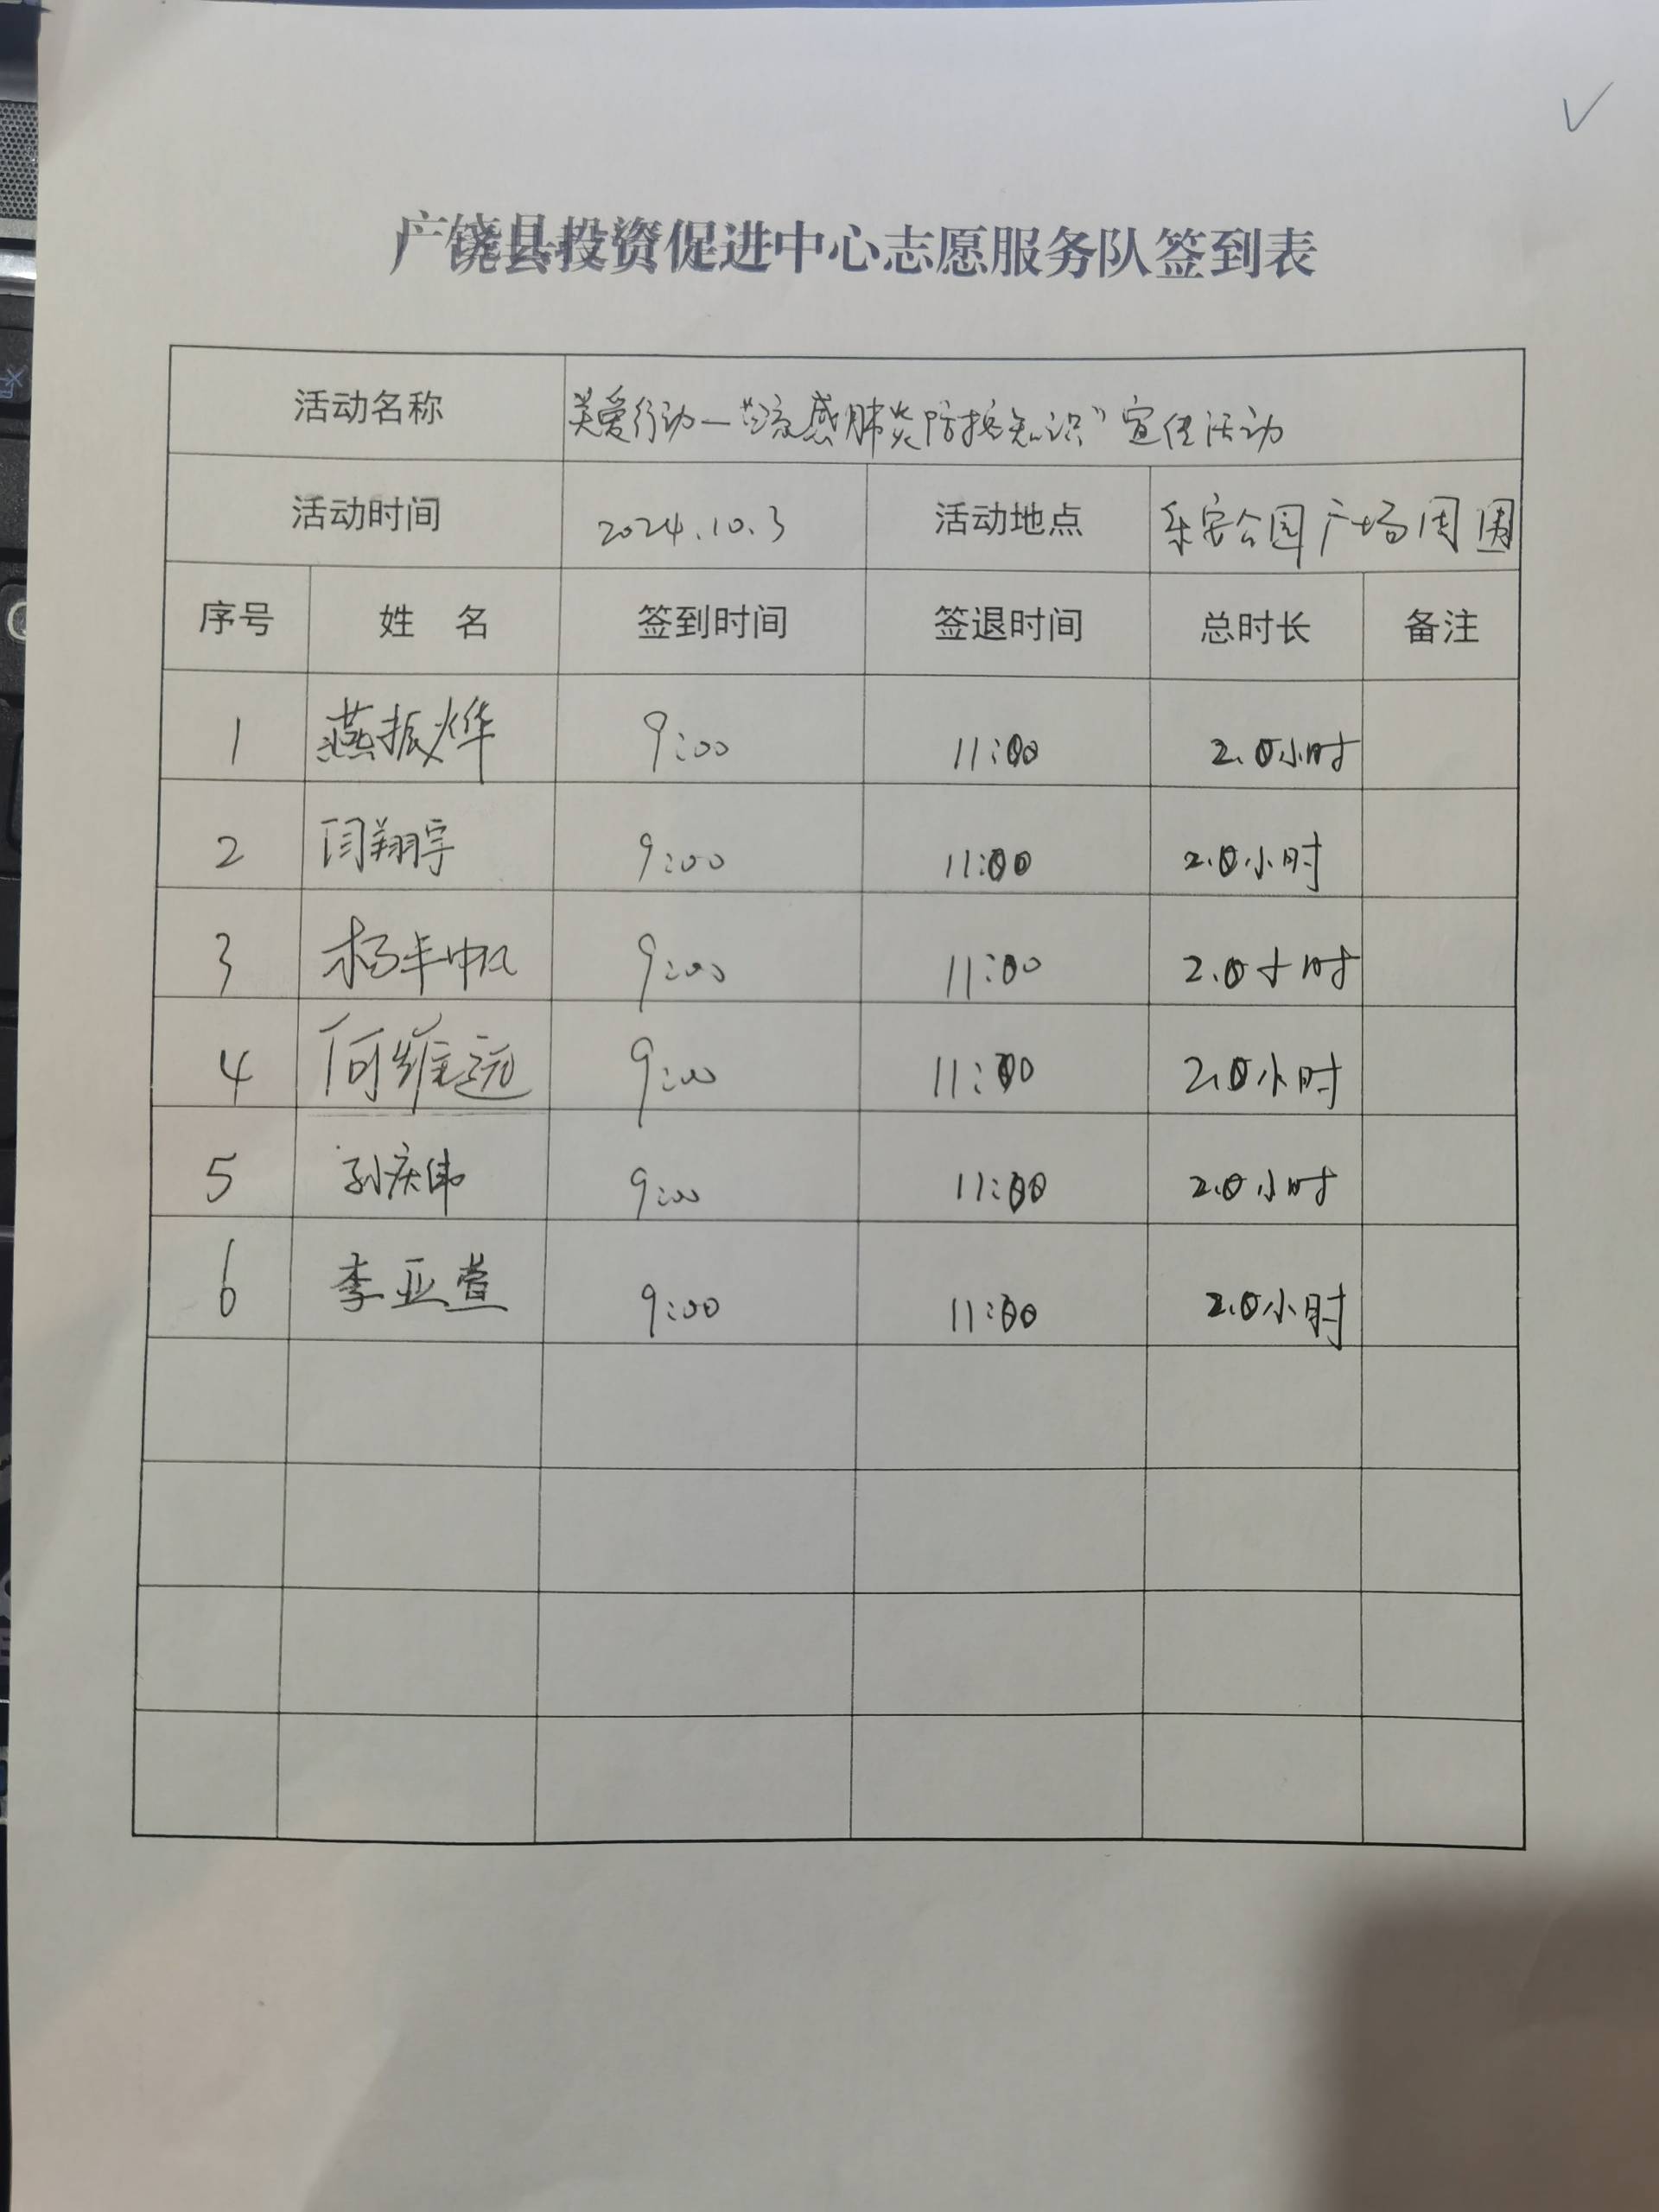 广饶县投资促进中心志愿服务队签到表
活动名称 关爱行动—“流感肺炎防控知识”宣传活动
活动时间 2024.10.3 活动地点 乐安公园广场周围
序号 姓 名 签到时间 签退时间 总时长 备注
1 燕振烨 9:00 11:00 2.0小时
2 闫翔宇 9:00 11:00 2.0小时
3 杨丰帆 9:00 11:00 2.0小时
4 何维远 9:00 11:00 2.0小时
5 孙庆伟 9:00 11:00 2.0小时
6 李亚萱 9:00 11:00 2.0小时